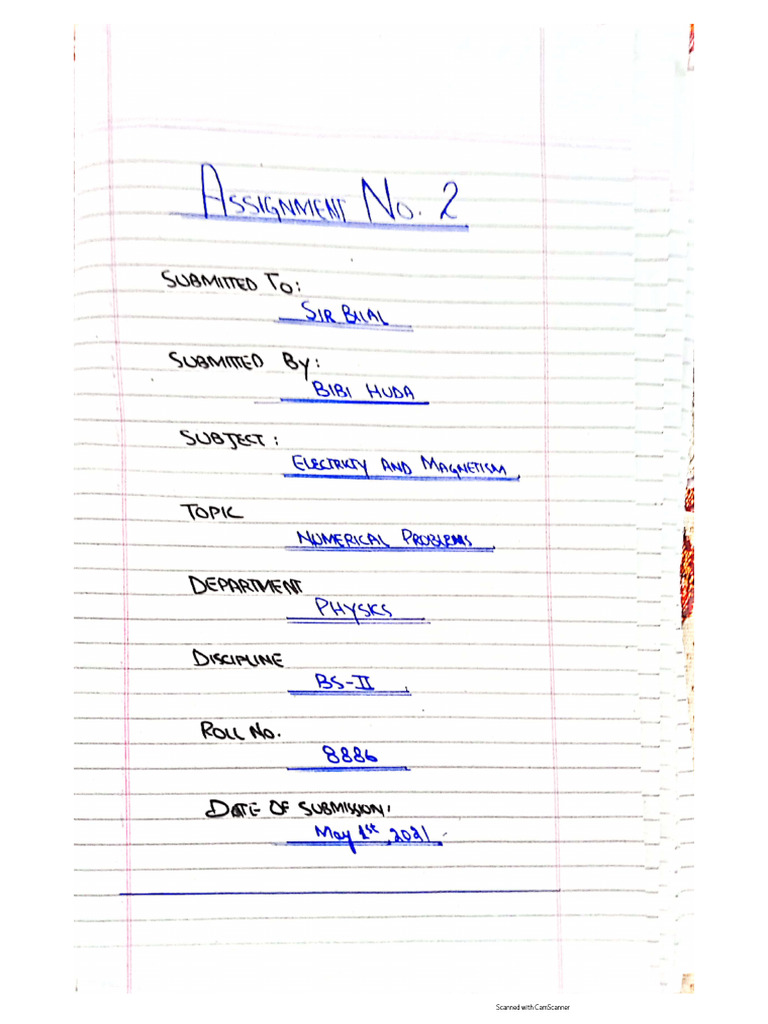 ASSIGNMENT NO. 2
SUBMITTED TO:
SIR BILAL
SUBMITTED By:
BIBI HUDA
SUBJECT:
ELECTRICTY AND MAGNETISM
TOPIC
NUMERICAL PROBLEMS
DEPARTMENT
PHYSICS
DISCIPLINE
BS-II
ROLL NO.
8886
DATE OF SUBMISSION:
May 1st, 2021
Scanned with CamScanner